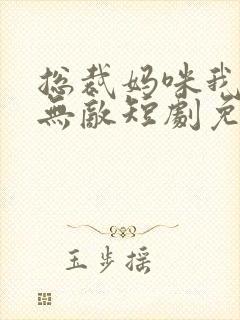 总裁妈咪我
無敵短劇免
玉步摇